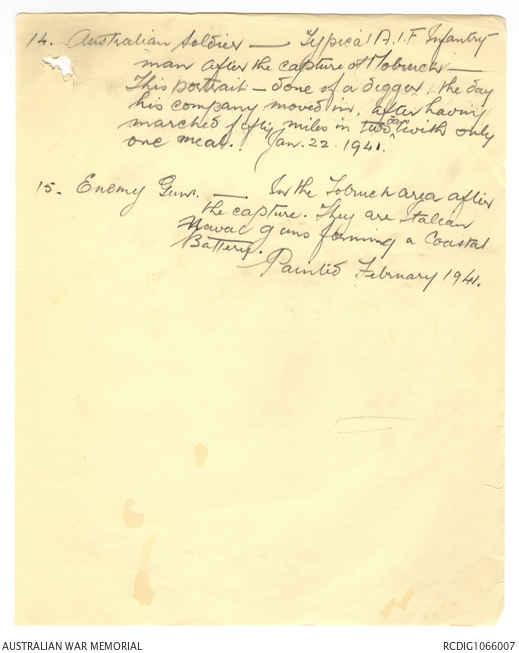 14. Australian Soldier — Typical A.I.F Infantry
man after the capture of Tobruch —
This portrait – done of a digger, the day
his company moved in, after having
marched fifty miles in two days with only
one meal. Jan. 22. 1941.
15. Enemy Guns. — In the Tobruch area after
the capture. They are Italian
Naval guns forming a Coastal
Battery.
Painted February 1941.
AUSTRALIAN WAR MEMORIAL
RCDIG1066007